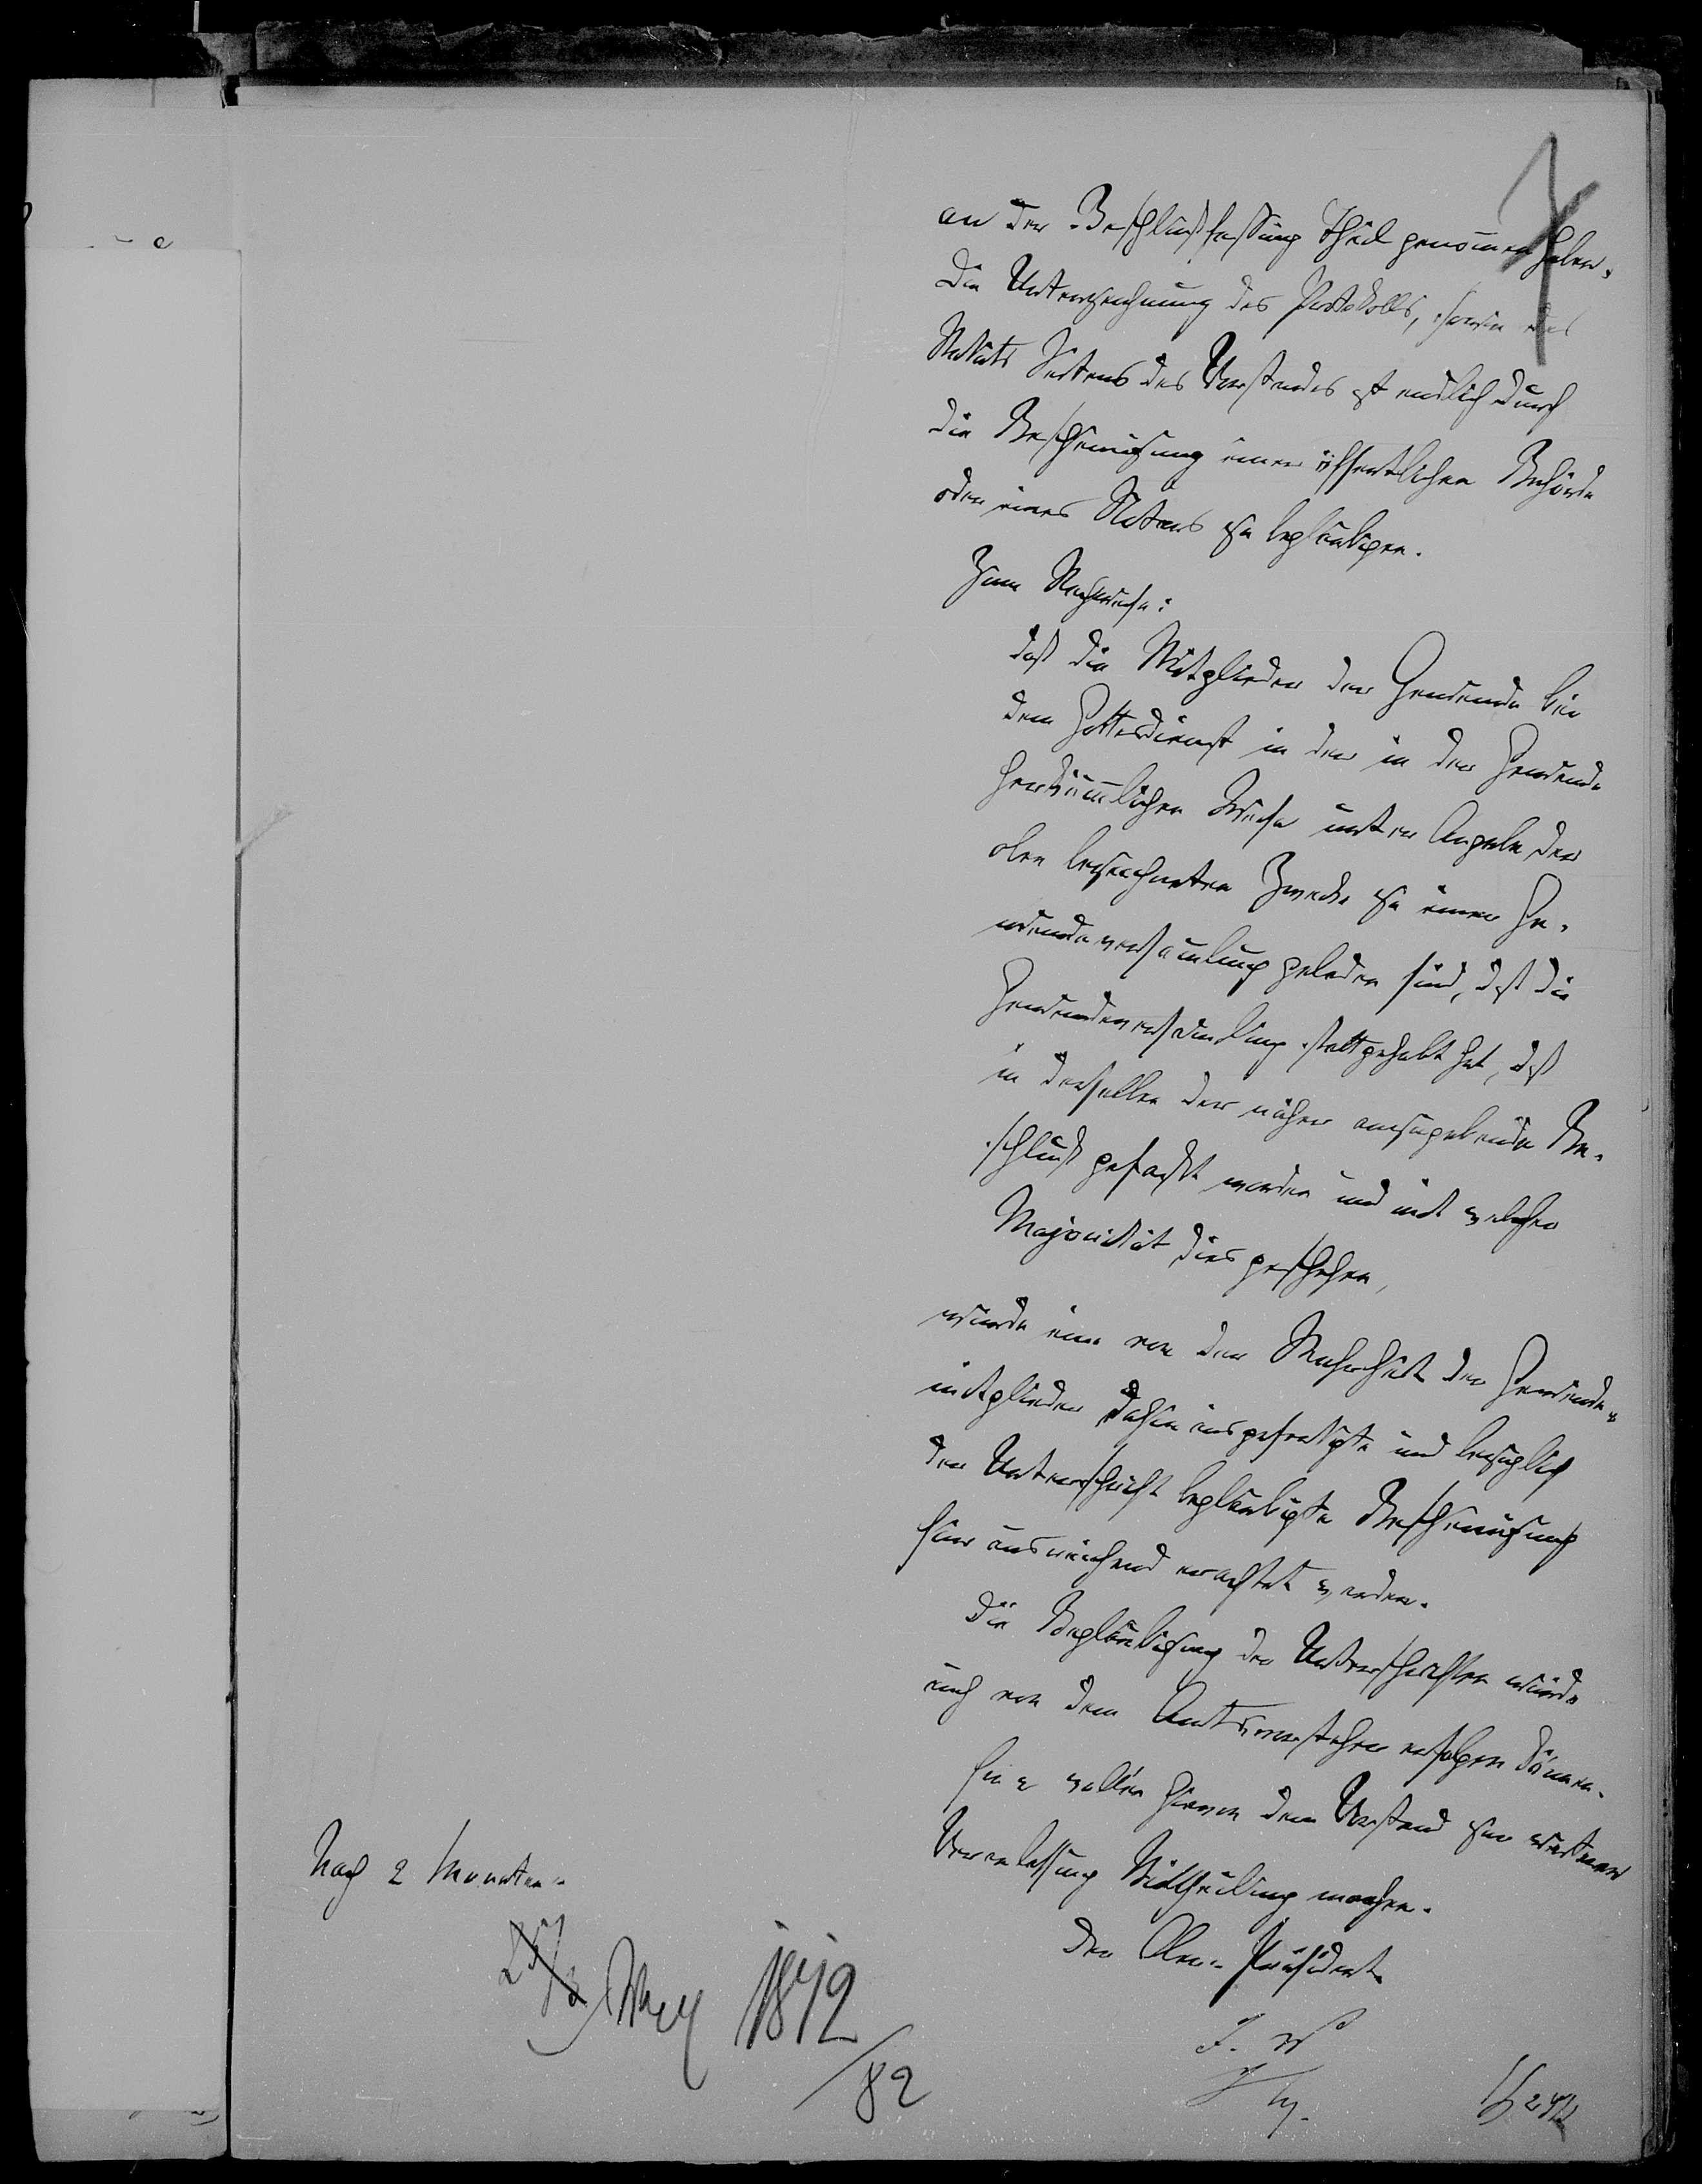 an der Beschlußfassung Theil genommen haben.
Die Unterzeichnung des Protokolls, sowie des
Statuts Seitens des Vorstandes ist endlich durch
die Bescheinigung einer öffentlichen Behörde
oder eines Notars zu beglaubigen.
Zum Nachweise:
daß die Mitglieder der Gemeinde bei
dem Gottesdienst in der in der Gemeinde
herkömmlichen Weise unter Angabe der
oben bezeichneten Zwecke zu einer Ge-
meindeversammlung geladen sind, daß die
Gemeindeversammlung stattgehabt hat, daß
in derselben der näher anzugebende Be-
schluß gefaßt worden und mit welcher
Majorität dies geschehen,
würde eine von der Mehrheit der Gemeinde-
mitglieder dahin ausgefertigte und bezüglich
der Unterschrift beglaubigte Bescheinigung
für ausreichend erachtet werden.
Die Beglaubigung der Unterschriften würde
auch von dem Amtsvorsteher erfolgen können.
Sie wollen hiervon dem Vorstand zur weiteren
Veranlassung Mittheilung machen.
Der Ober-Präsident
Nach 2 Monaten.
J. V.
1812
/82